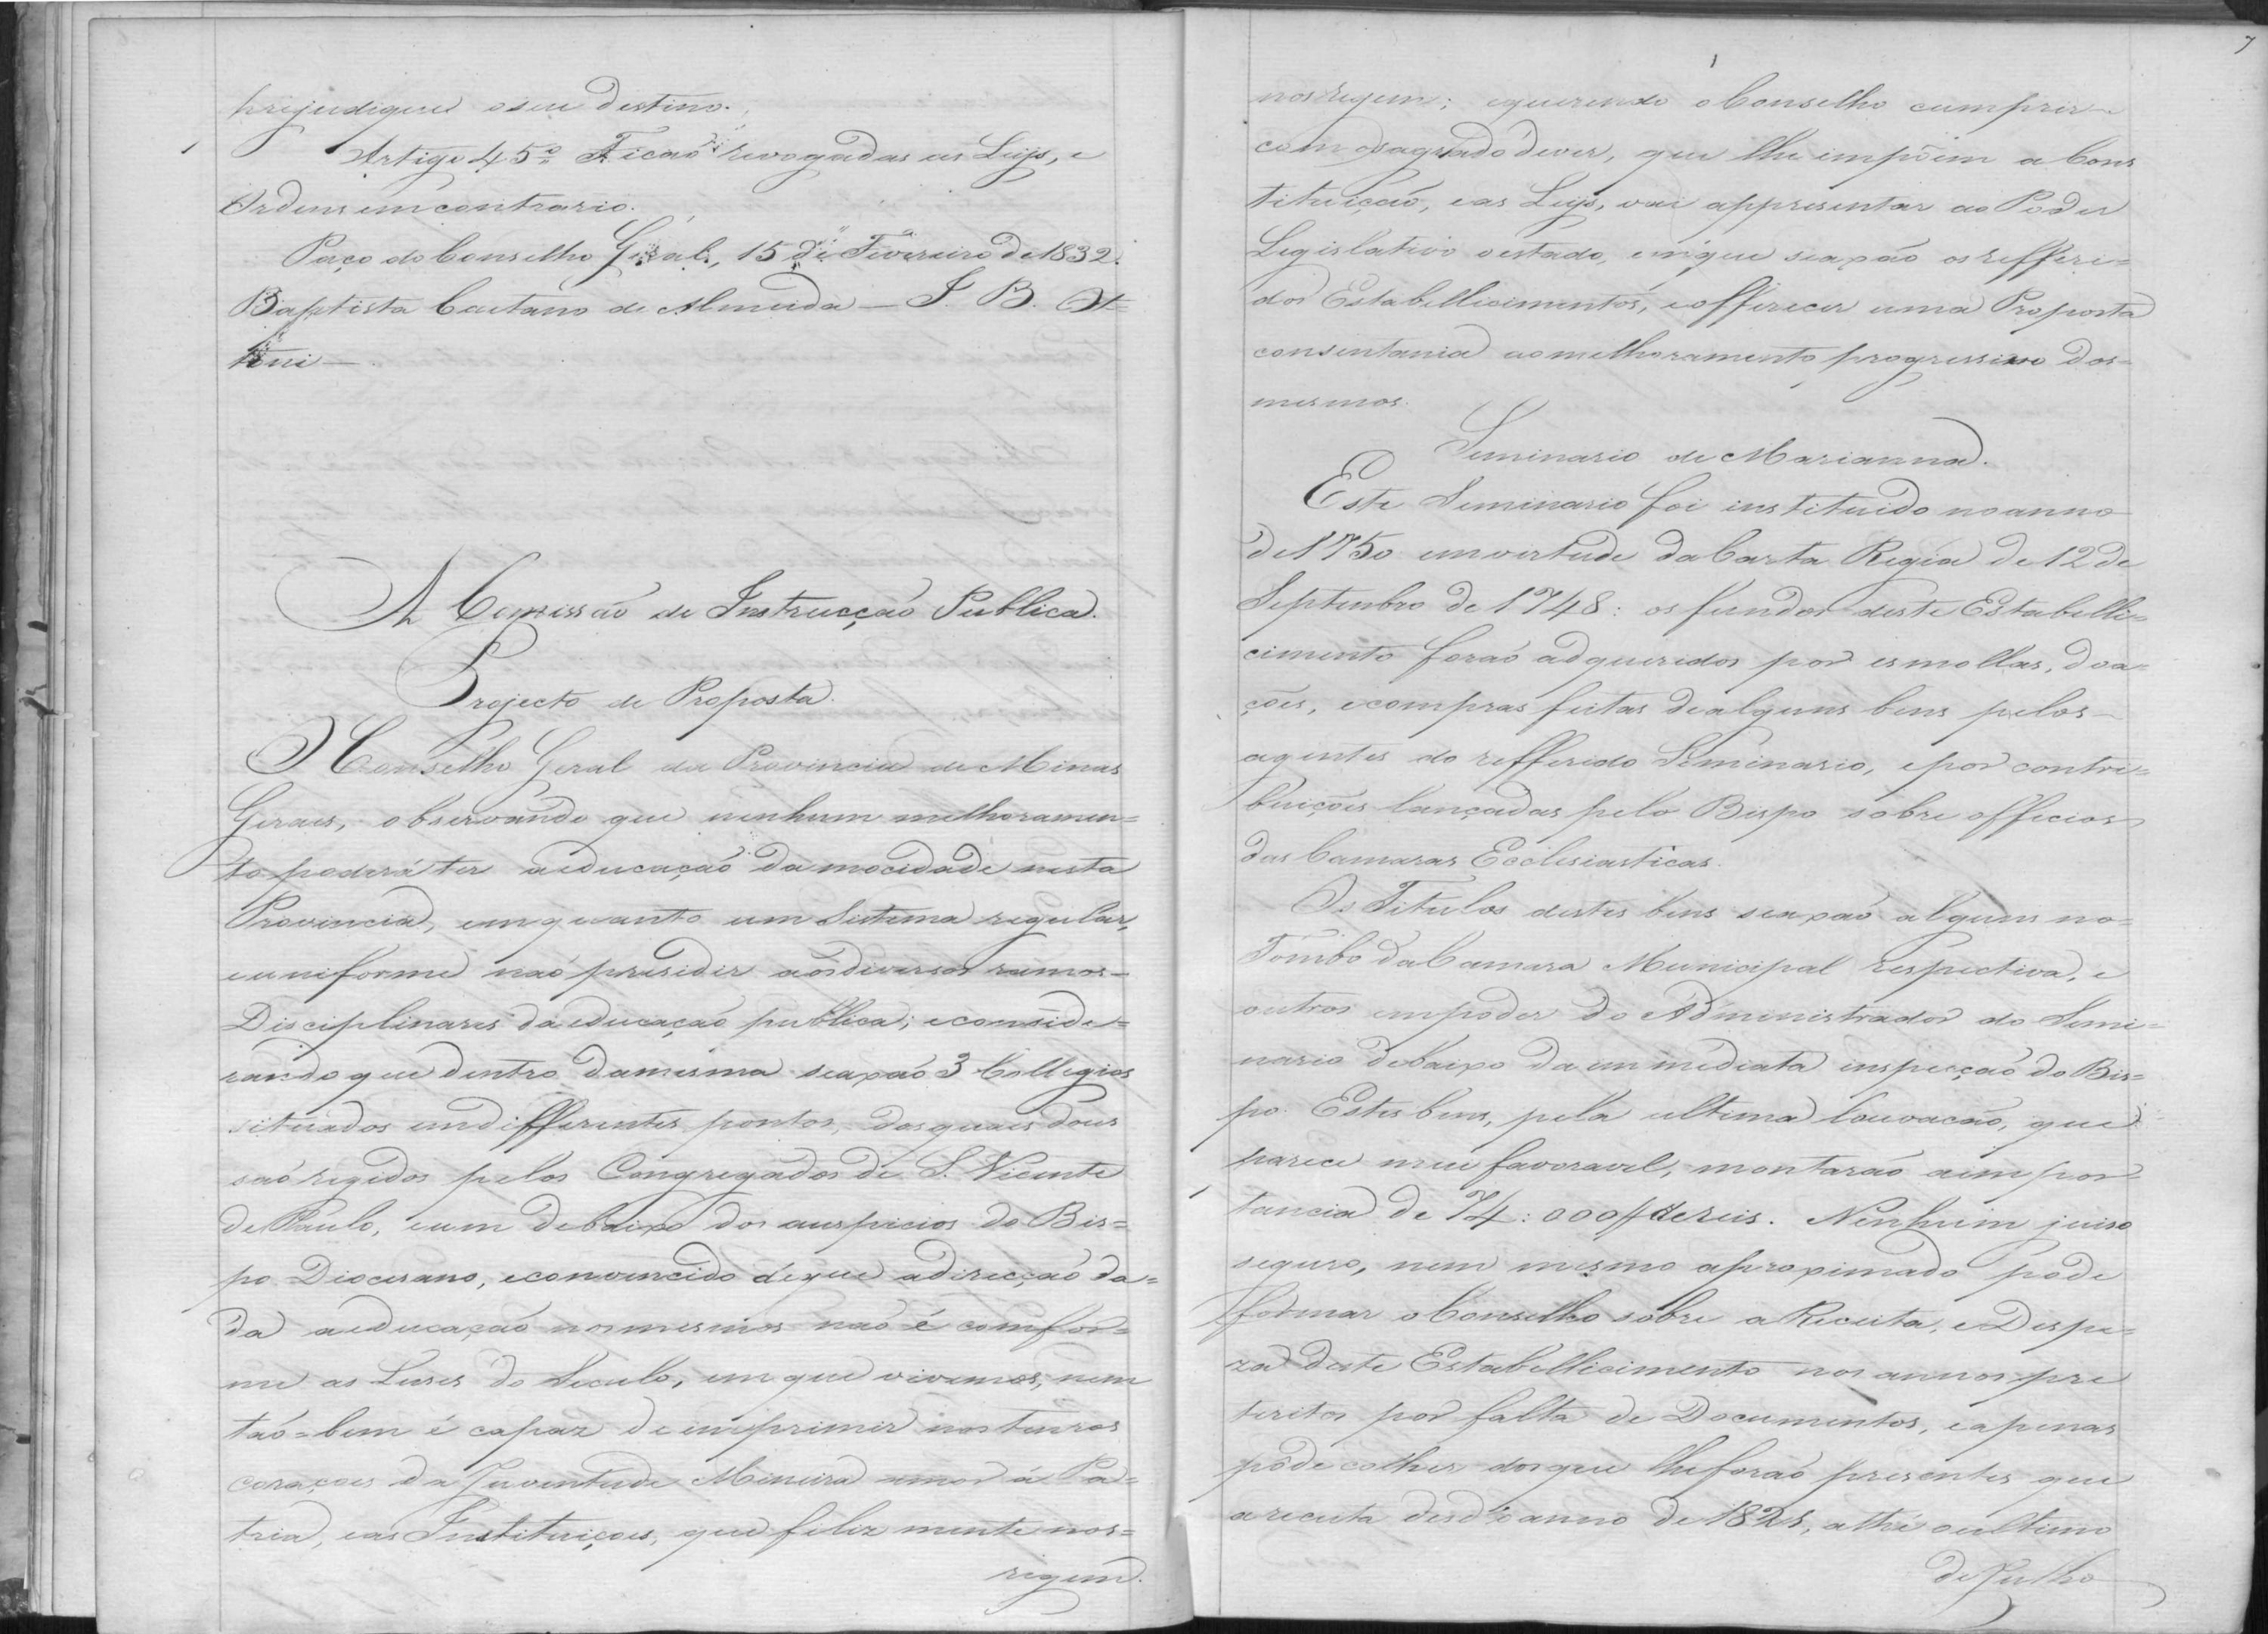 prejudique o seu destino.
Artigo 45º Ficaõ revogadas as Leys, e
Ordens em contrario.
Paço do Conselho Geral, 15 de Fevereiro de 1832.
Baptista Caetano de Almeida — J. B. Ot=
toni —
A Comissaõ de Instrucçaõ Publica.
Projecto de Proposta.
O Conselho Geral da Provincia de Minas
Geraes, observando que nenhum melhoramen=
to poderá ter a educaçaõ da mocidade nesta
Provincia, em quanto um Sistema regular,
e uniforme naõ presidir aos diversos ramos
Disciplinares da educaçaõ publica; e conside=
rando que dentro da mesma se axaõ 3 Collegios
situados em differentes pontos, dos quaes dous
saõ regidos pelos Congregados de S. Vicente
de Paulo, e um debaixo dos auspicios do Bis=
po Diocesano, e convencido de que a direcçaõ da=
da a educaçaõ nos mesmos naõ é comfor=
me as Luses do Seculo, em que vivemos, nem
taõ=bem é capaz de imprimir nos tenros
coraçoes da Juventude Mineira amor á Pa=
tria, e as Instituiçoes, que feliz mente nos=
regem.
7
nos regem; e querendo o Conselho cumprir
com o sagrado dever, que lhe impõem a Cons
tituiçaõ, e as Leys, vai appresentar ao Poder
Legislativo o estado, em que se axão os refferi=
dos Estabellicimentos, e offerecer uma Proposta
consentania ao melhoramento progressivo dos
mesmos.
Seminario de Marianna.
Este Seminario foi instituido no anno
de 1750 em virtude da Carta Regia de 12 de
Septembro de 1748: os fundos deste Estabelli=
cimento foraõ adqueridos por esmollas, doa=
ções, e compras feitas de alguns bens pelos
agentes do refferido Seminario, e por contri=
buiçoes lançadas pelo Bispo sobre officios
das Camaras Ecclesiasticas.
Os Titulos destes bens se axaõ alguns no=
Tombo da Camara Municipal respectiva, e
outros em poder do Administrador do Semi=
nario debaixo da immediata inspecçaõ do Bis=
po. Estes bens, pela ultima louvacaõ, que
parece mui favoravel, montaraõ a impor=
tancia de 74:000$ de reis. Nenhum juiso
seguro, nem mesmo aproximado pode
formar o Conselho sobre a Receita, e Despe=
za deste Estabellicimento nos annos pre
teritos por falta de Documentos, e apenas
pôde colher dos que lhe foraõ presentes que
a receita desd'o anno de 1821, athé o ultimo
de Julho